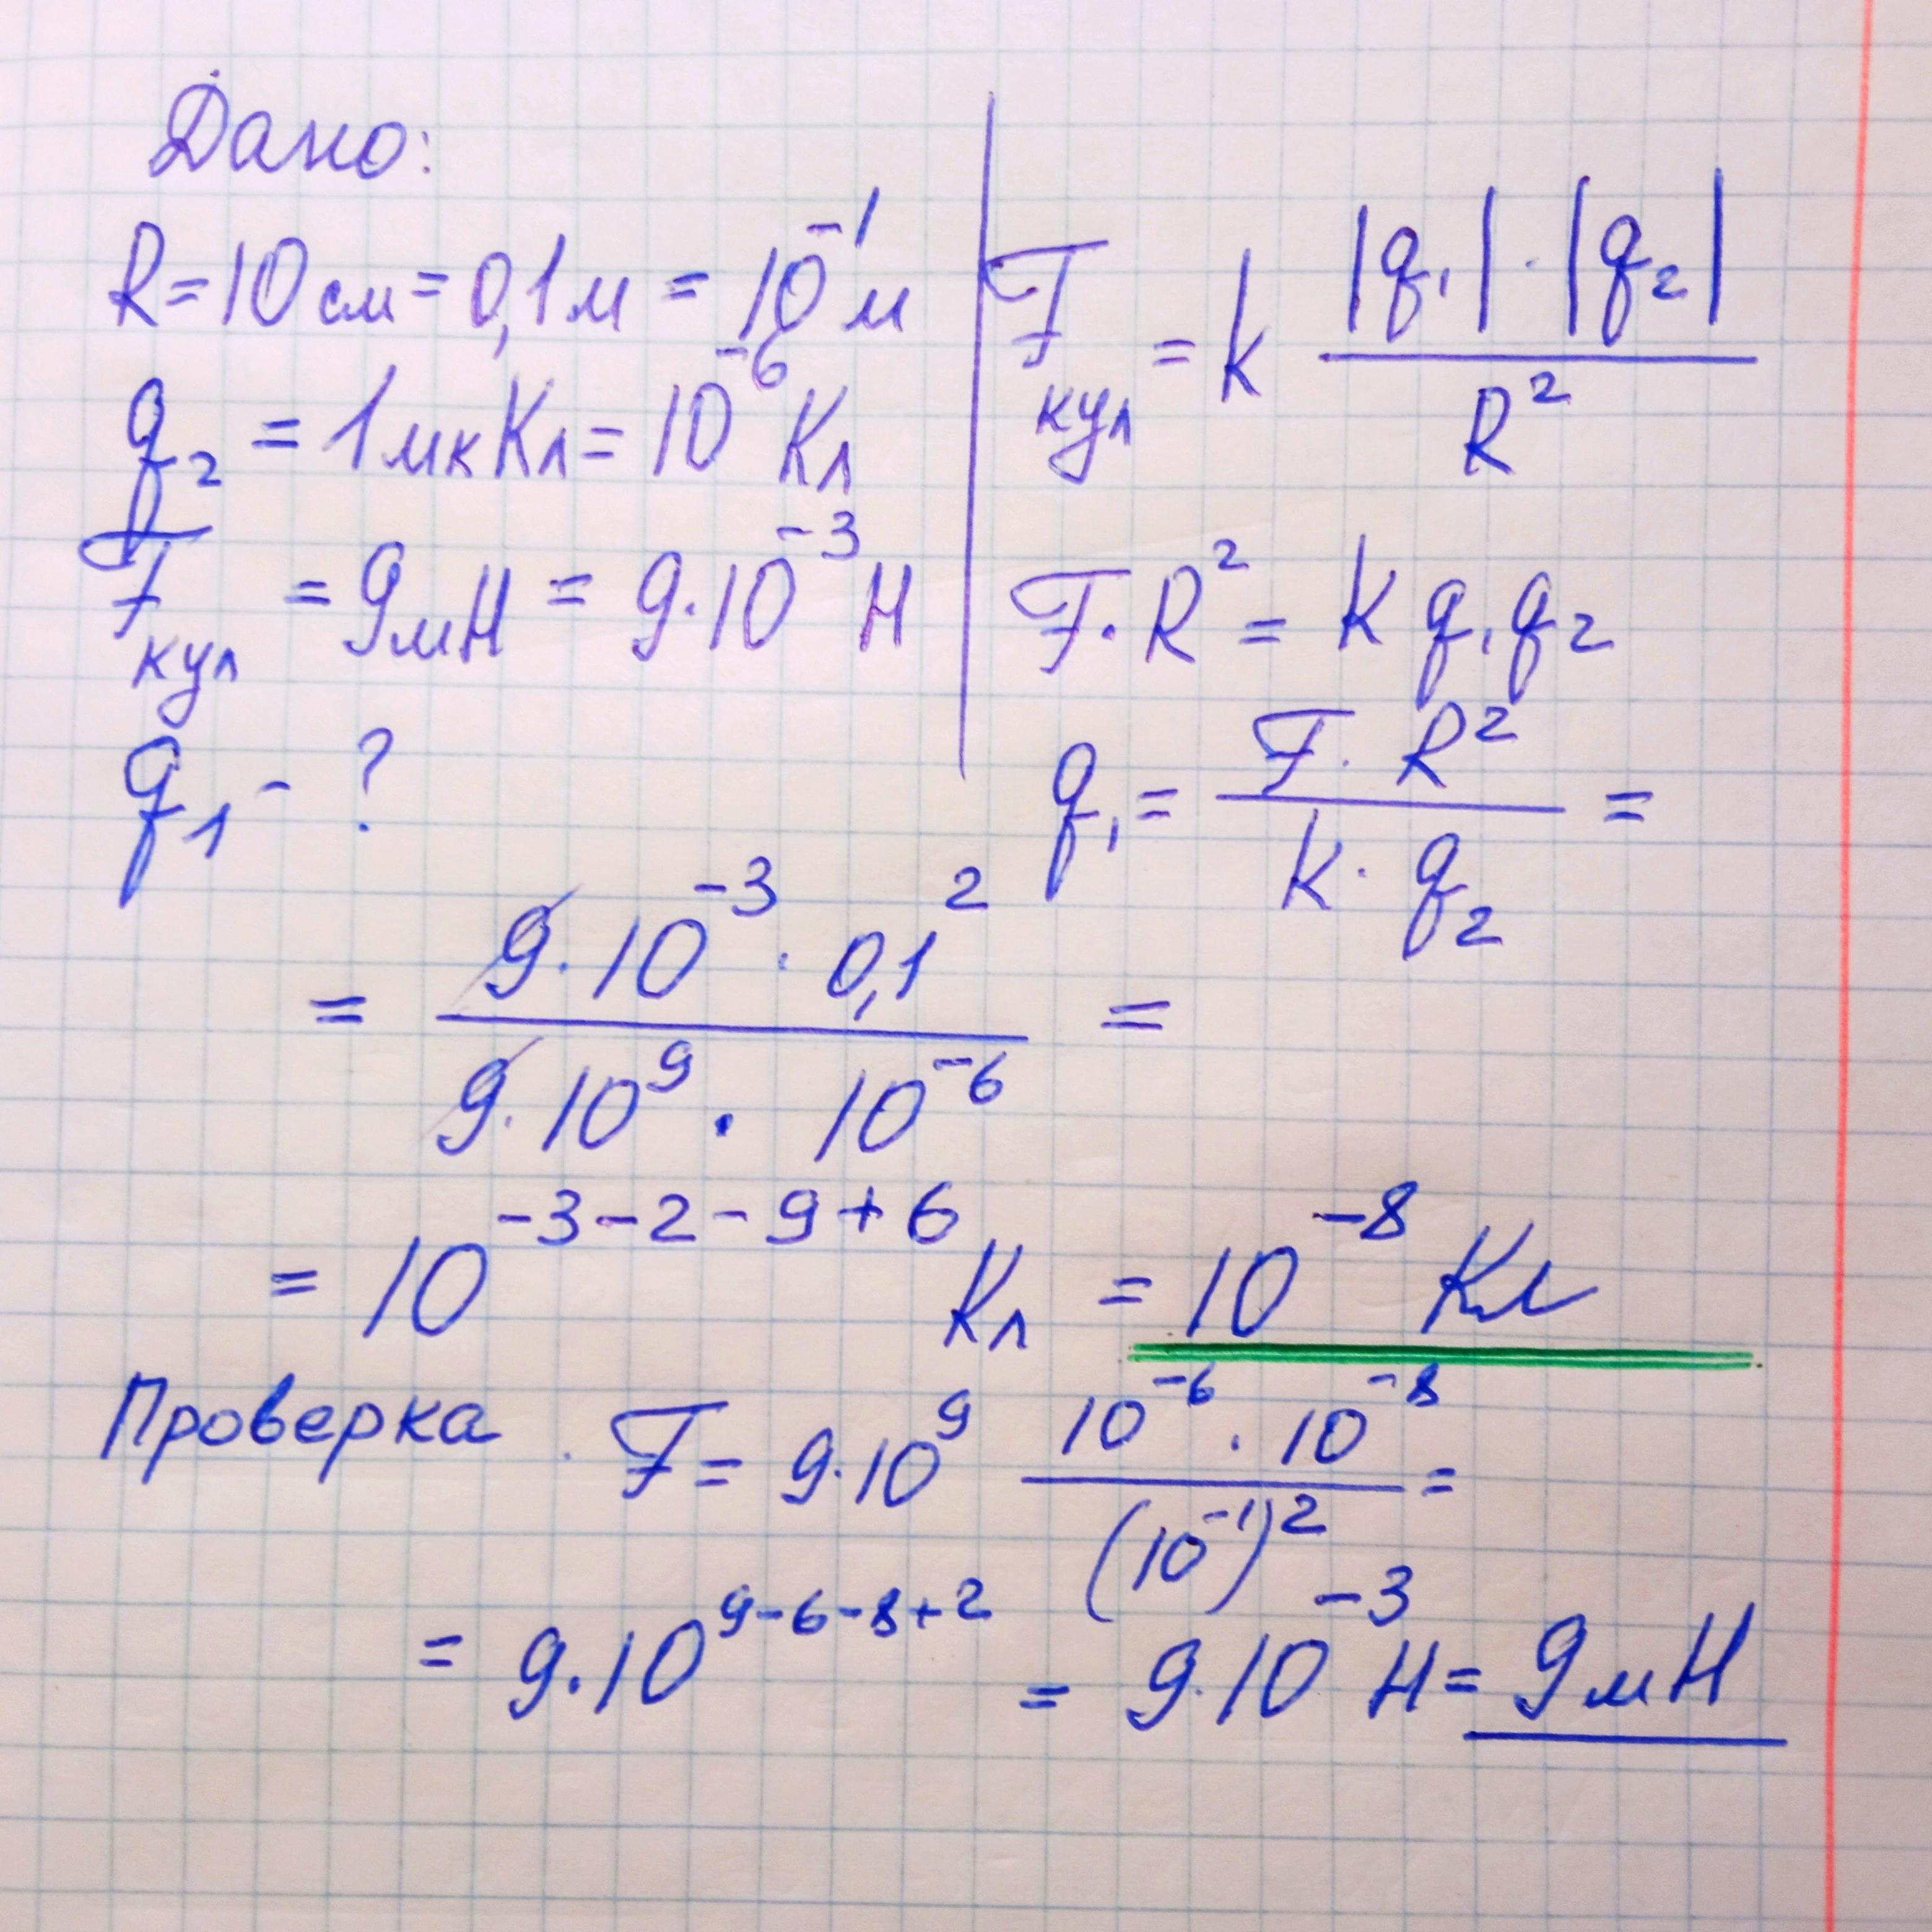 Дано:
R = 10 см = 0,1 м = 10⁻¹ м
q₂ = 1 мкКл = 10⁻⁶ Кл
Fкул = 9 мН = 9·10⁻³ Н
q₁ - ?
Fкул = k |q₁|·|q₂| / R²
F·R² = k q₁q₂
q₁ = F·R² / k·q₂ =
= 9·10⁻³·0,1² / 9·10⁹·10⁻⁶ =
= 10⁻³⁻²⁻⁹⁺⁶ Кл = 10⁻⁸ Кл
Проверка F = 9·10⁹ 10⁻⁶·10⁻⁸ / (10⁻¹)² =
= 9·10⁹⁻⁶⁻⁸⁺² = 9·10⁻³ Н = 9 мН